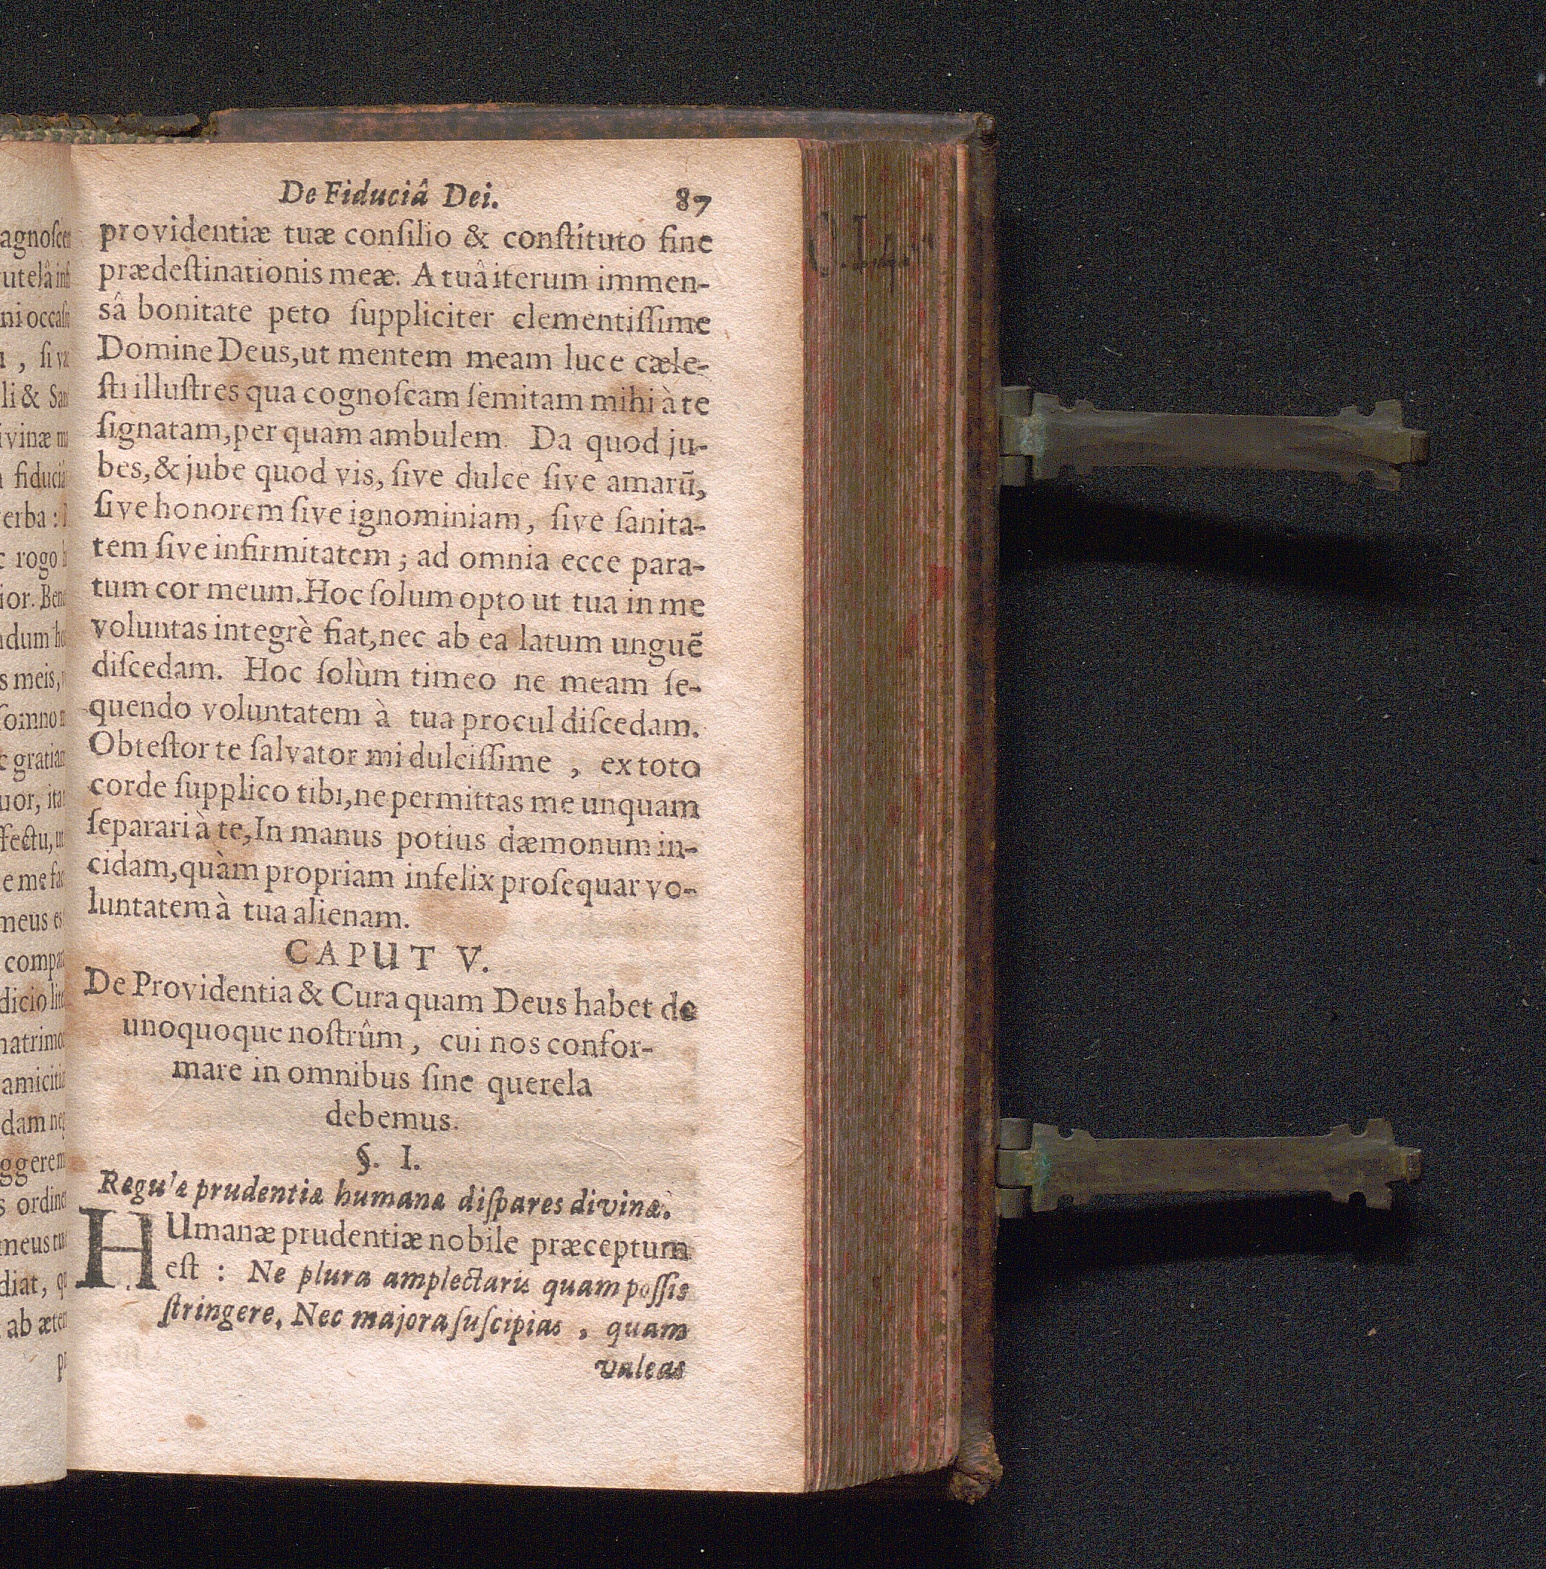 De Fiduciâ Dei. 87
providentiæ tuæ conſilio & conſtituto fine
prædeſtinationis meæ. A tuâ iterum immen-
sâ bonitate peto ſuppliciter clementiſſime
Domine Deus, ut mentem meam luce cæle-
ſti illuſtres qua cognoſcam ſemitam mihi à te
ſignatam, per quam ambulem. Da quod ju-
bes, & jube quod vis, ſive dulce ſive amarū,
ſive honorem ſive ignominiam, ſive ſanita-
tem ſive infirmitatem; ad omnia ecce para-
tum cor meum. Hoc ſolum opto ut tua in me
voluntas integrè fiat, nec ab ea latum unguē
diſcedam. Hoc ſolùm timeo ne meam ſe-
quendo voluntatem à tua procul diſcedam.
Obteſtor te ſalvator mi dulciſſime, ex toto
corde ſupplico tibi, ne permittas me unquam
ſeparari à te, In manus potius dæmonum in-
cidam, quàm propriam infelix proſequar vo-
luntatem à tua alienam.
CAPUT V.
De Providentia & Cura quam Deus habet de
unoquoque noſtrûm, cui nos confor-
mare in omnibus ſine querela
debemus.
§. I.
Regulæ prudentiæ humanæ diſpares divinæ.
HUmanæ prudentiæ nobile præceptum
eſt : Ne plura amplectaris quam poſſis
ſtringere, Nec majora ſuſcipias, quam
valeas
agnoſcen
ni occaſi
li & San
ivinæ
fiduciâ
erba :
rogo
ior. Ben
s meis,
ſomno
gratiam
fectu,
e me
meus
dicio
natrimo
amicitiæ
dam
ggerem
s ordine
meus
diat,
ab ætern